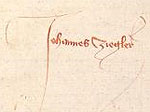 Johannes Ziegler